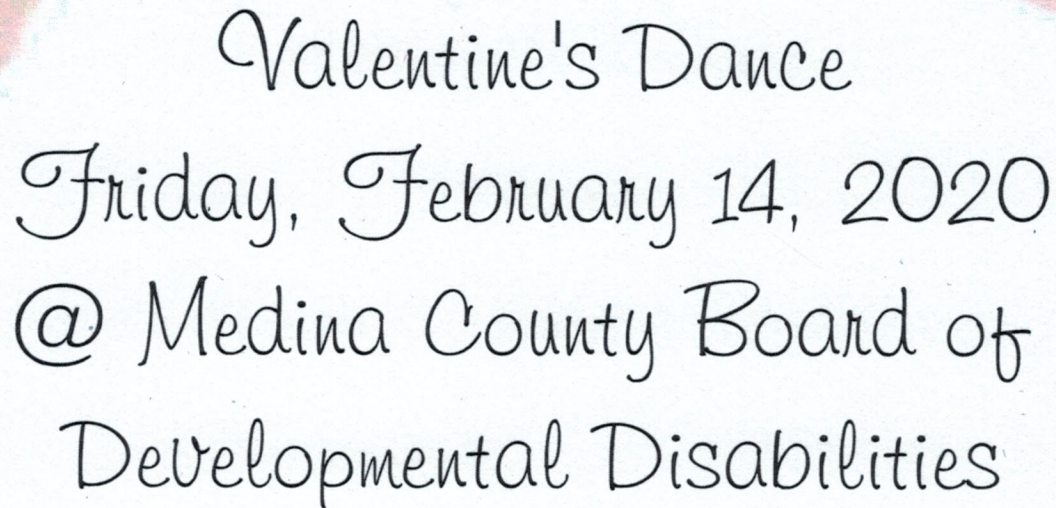 Valentine's Dance
Friday, February 14, 2020
@ Medina County Board of
Developmental Disabilities